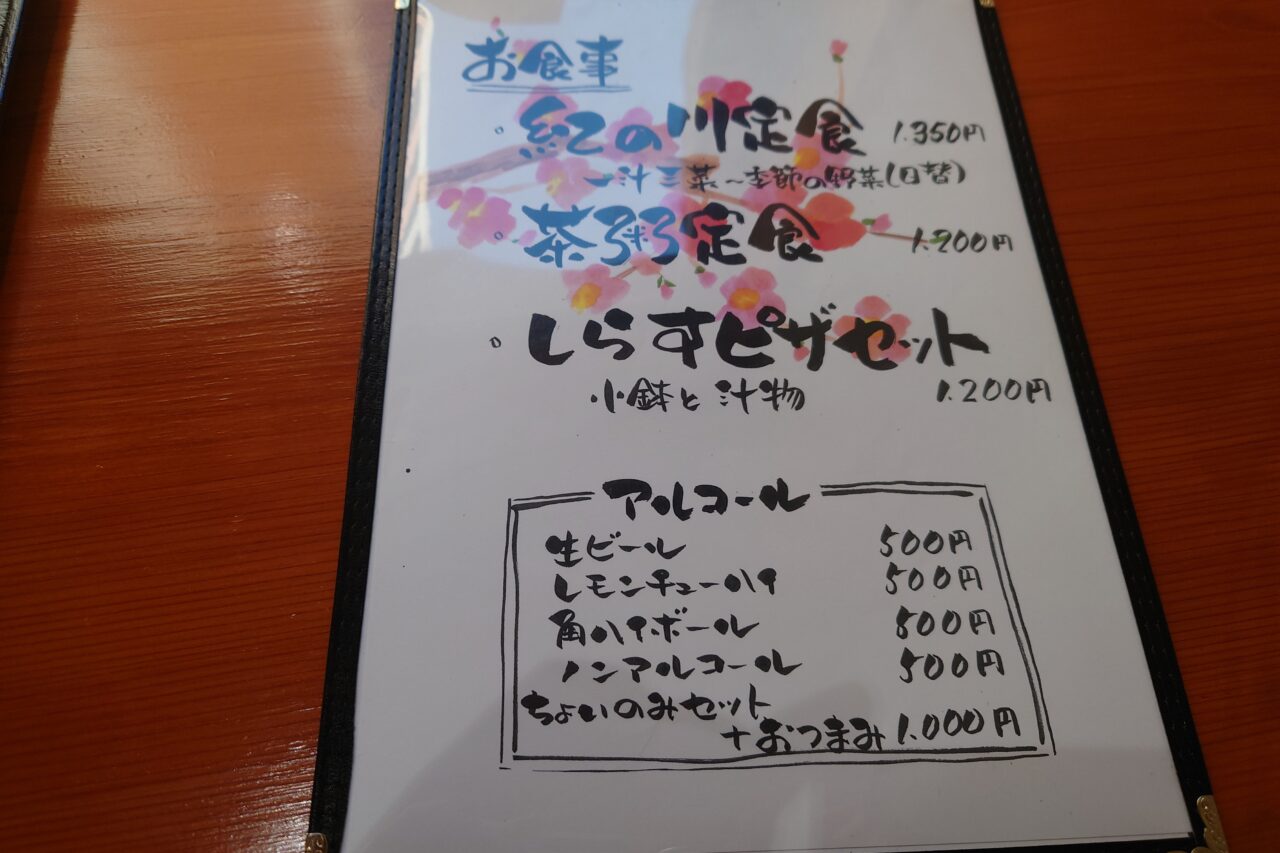 お食事
。紀の川定食 1.350円
一汁三菜〜季節の野菜(日替)
。茶粥定食 1.200円
。しらすピザセット
小鉢と汁物 1.200円
アルコール
生ビール 500円
レモンチューハイ 500円
角ハイボール 500円
ノンアルコール 500円
ちょいのみセット
+おつまみ 1.000円